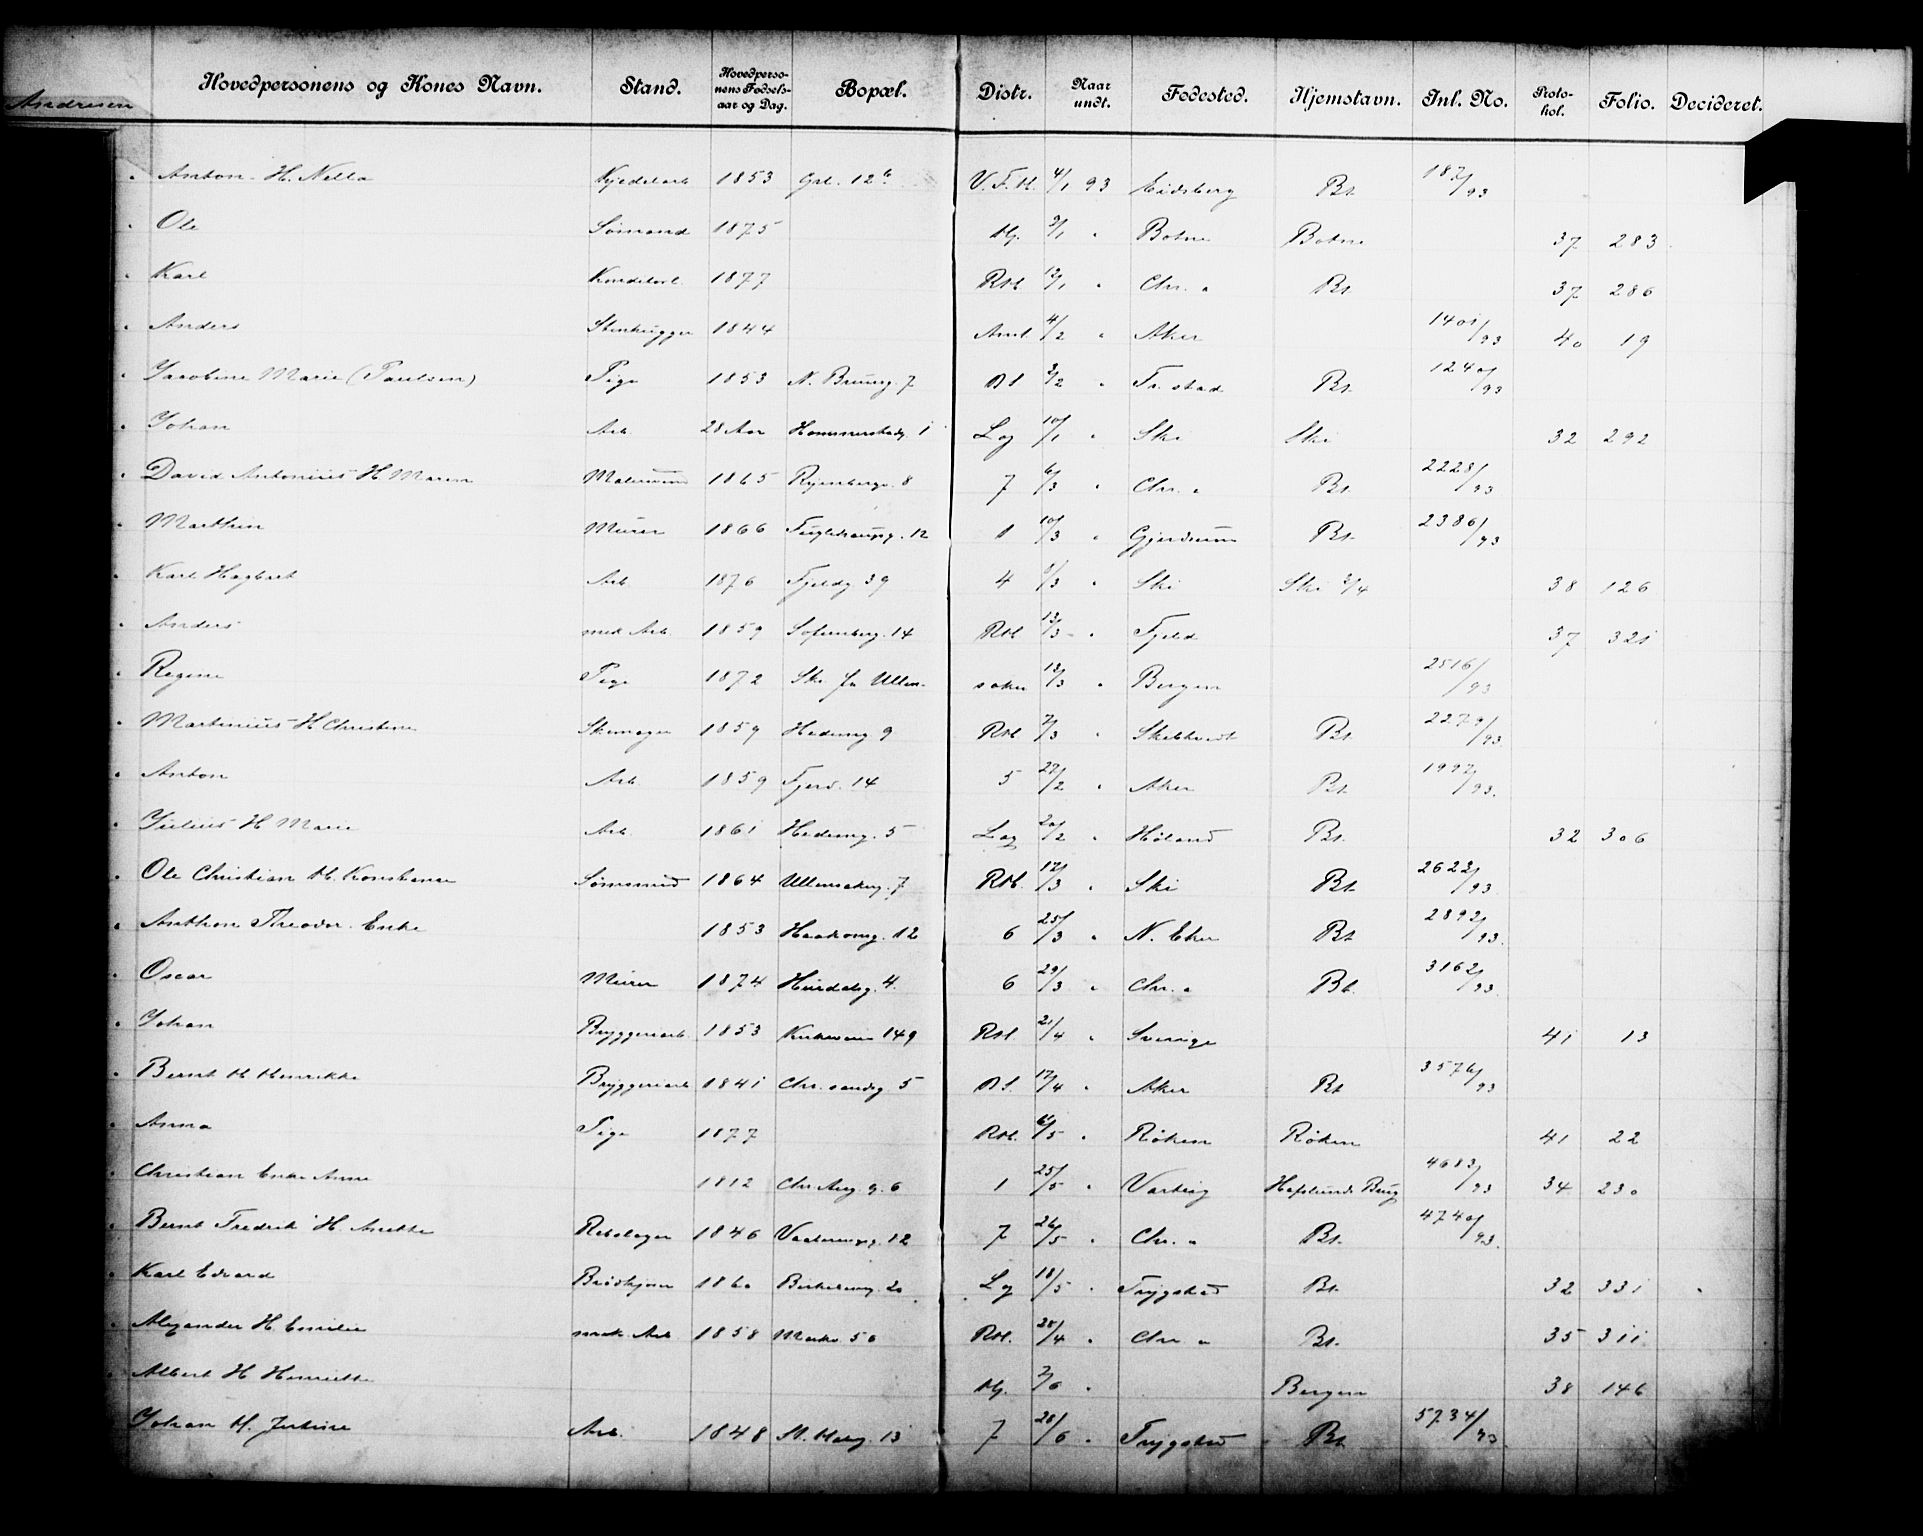 Andresen
Hovedpersonens og Kones Navn. Stand. Hovedpersonens Fødselsaar og Dag. Bopæl. Distr. Naar undt. Fødested. Hjemstavn. Inl. No. Protokol. Folio. Decideret.
" Anton H. Nella Kjedelarb 1853 Grl. 12b V.F.H. 4/1 93 Eidsberg Bt 187/93
" Ole Sømand 1875 Hj. 9/1 " Botne Botne 37 283
" Karl Konditorl. 1877 Rst 12/1 " Chr.a Bt 37 286
" Anders Stenhugger 1844 Aml 4/2 " Aker 1401/93 40 19
" Jacobine Marie (Paulsen) Pige 1853 N. Brung. 7 Bt 3/2 " Fr.stad Bt 1240/93
" Johan Arb. 28 Aar Hammerstadg. 1 Log 10/1 " Ski Ski 32 292
" David Antonius H Maren Malersvend 1865 Ryenbergv. 8 7 6/3 " Chr.a Bt. 2228/93
" Marthin Murer 1866 Fuglehaugg. 12 1 10/3 " Gjerdrum Bt 2386/93
" Karl Hagbart Arb 1876 Fjeldg 39 4 1/3 " Ski Ski 2/4 38 126
" Anders mek Arb. 1859 Sofienberg. 14 Rst 13/3 " Fjeld 37 321
" Regine Pige 1872 Ski fr Ullensaker 13/3 " Bergen 2516/93
" Martinius H Christine Skomager 1859 Hedemg 9 Rst 7/3 " Skibtvedt Bt 2279/93
" Anton Arb. 1859 Fjerd. 14 5 27/2 " Aker Bt 1997/93
" Julius H Marie Arb 1861 Hedemg. 5 Log 20/2 " Høland Bt. 32 306
" Ole Christian H. Konstance Sømsmed 1864 Ullensakerg. 7 Rst. 17/3 " Ski Bt 2622/93
" Anthon Theodor. Enke 1853 Haakong. 12 6 25/3 " N. Eker Bt 2892/93
" Oscar Murer 1874 Hurdalsg. 4. 6 29/3 " Chr.a Bt. 3162/93
" Johan Bryggeriarb. 1853 Kirkeveien 149 Rst. 21/4 " Sverige 41 13
" Bernt H Henrikke Bryggeriarb 1841 Chr.sandsg 5 Bt. 17/4 " Aker Bt 3576/93
" Anna Pige 1877 Rst. 6/5 " Røken Røken 41 22
" Christian Enke Anne 1812 Chr. Aug. g. 6 1 25/5 " Varteig Hafslunds Brug 4683/93 34 230
" Bernt Fredrik H. Anette Rebslager 1846 Vaalerengg. 12 7 26/5 " Chr.a Bt. 4740/93
" Karl Edvard Brødkjører 1860 Birkelung. 20 Log 18/5 " Trygstad Bt. 32 331
" Alexander H. Emilie mek. Arb 1858 Markv. 50 Rst. 28/4 " Chr a Bt. 35 311
" Albert H Henriette Hj. 7/6 " Bergen 38 146
Johan H. Justine Arb. 1848 St. Halvg. 13 7 28/6 " Trygstad Bt 5734/93